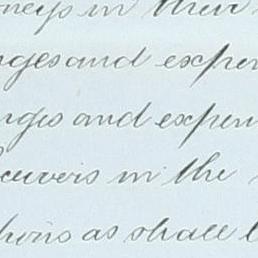 neys in their
nges and expen
arges and expen
ceivers in the
tions as shall b